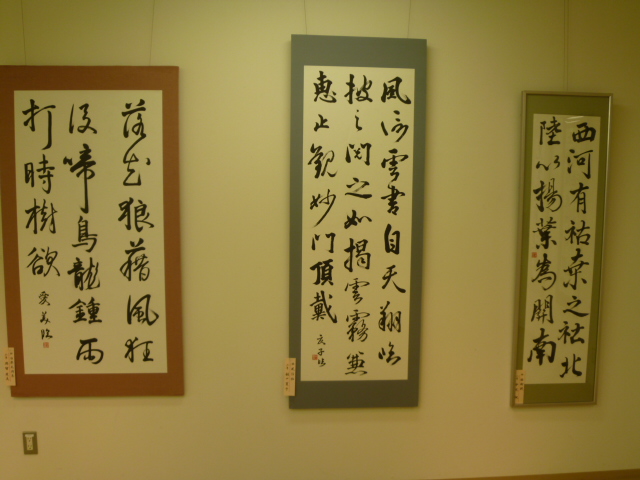 落花狼藉風狂
後啼鳥龍鍾雨
打時樹欲
風信雲書自天翔臨
披之閲之如揭雲霧兼
惠止觀妙門頂戴
西河有祐棄之祉北
陸以揚葉為開南